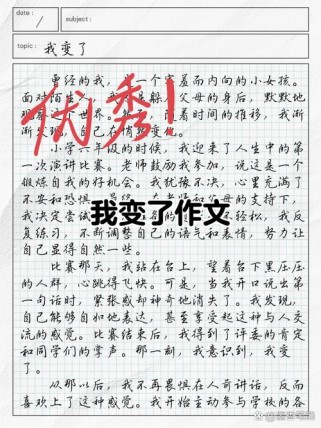 date:
subject:
topic: 我变了
优秀!
曾经的我，一个害羞而内向的小女孩。
面对陌生 躲 父母的身后，默默地
观 世界。 随着时间的推移，我渐
渐发现， 己在悄 变化。
小学六年级的时候，我迎来了人生中的第
一次演讲比赛。老师鼓励我参加，说这是一个
锻炼自我的好机会。我犹豫不决，心里充满了
不安和恐惧 和父母的支持下，
我决定尝试 不轻松，我反
复练习，不断调整自己的语气和表情，努力让
自己显得自然一些。
我变了作文
比赛那天，我站在台上，望着台下黑压压
的人群，心跳得飞快。可是，当我开口说出第
一句话时，紧张感却神奇地消失了。我发现，
自己能够自如地表达，甚至享受起这种与人交
流的感觉。比赛结束后，我得到了评委的肯定
和同学们的掌声。那一刻，我意识到，我变
了。
从那以后，我不再畏惧在人前讲话，反而
喜欢上了这种感觉。我开始主动参与学校的各